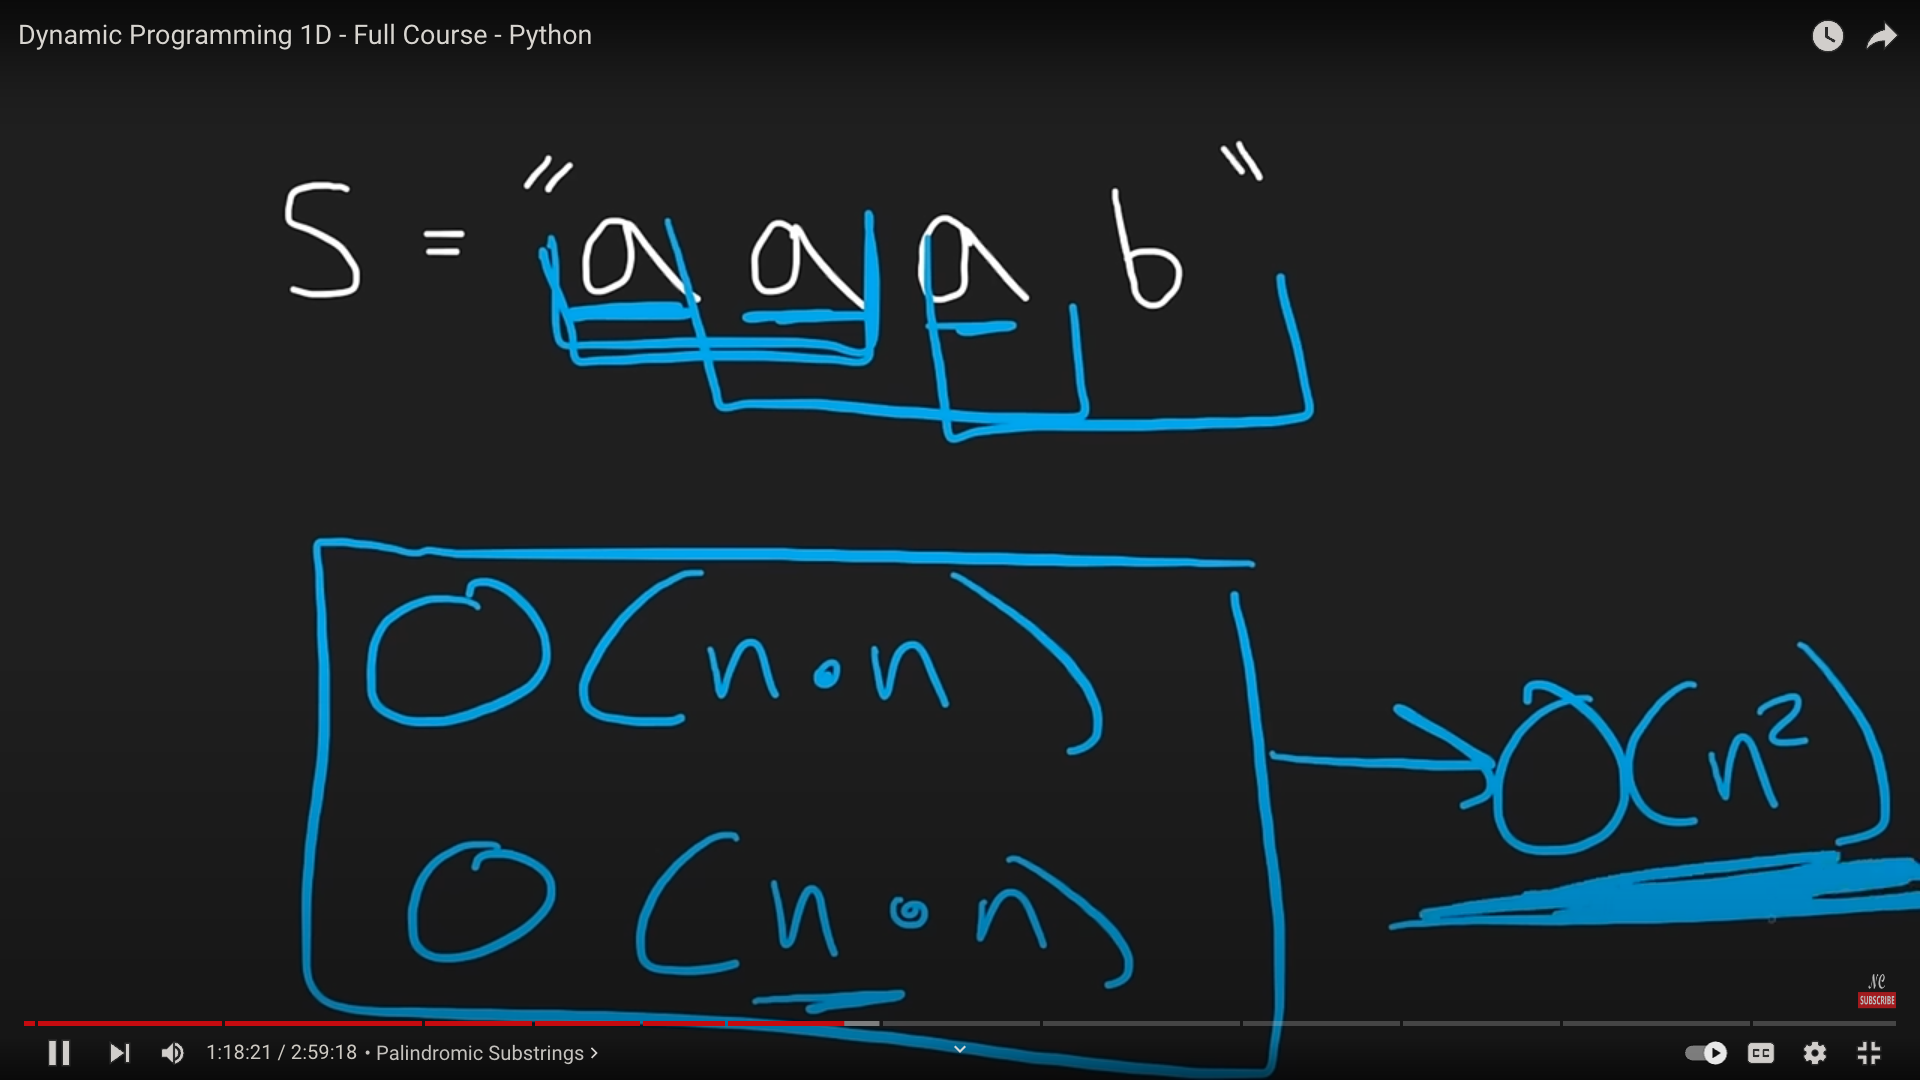 Dynamic Programming 1D - Full Course - Python
S = "aaab"
O(n·n)
O(n²)
O(n·n)
NC
SUBSCRIBE
1:18:21 / 2:59:18 • Palindromic Substrings >
CC